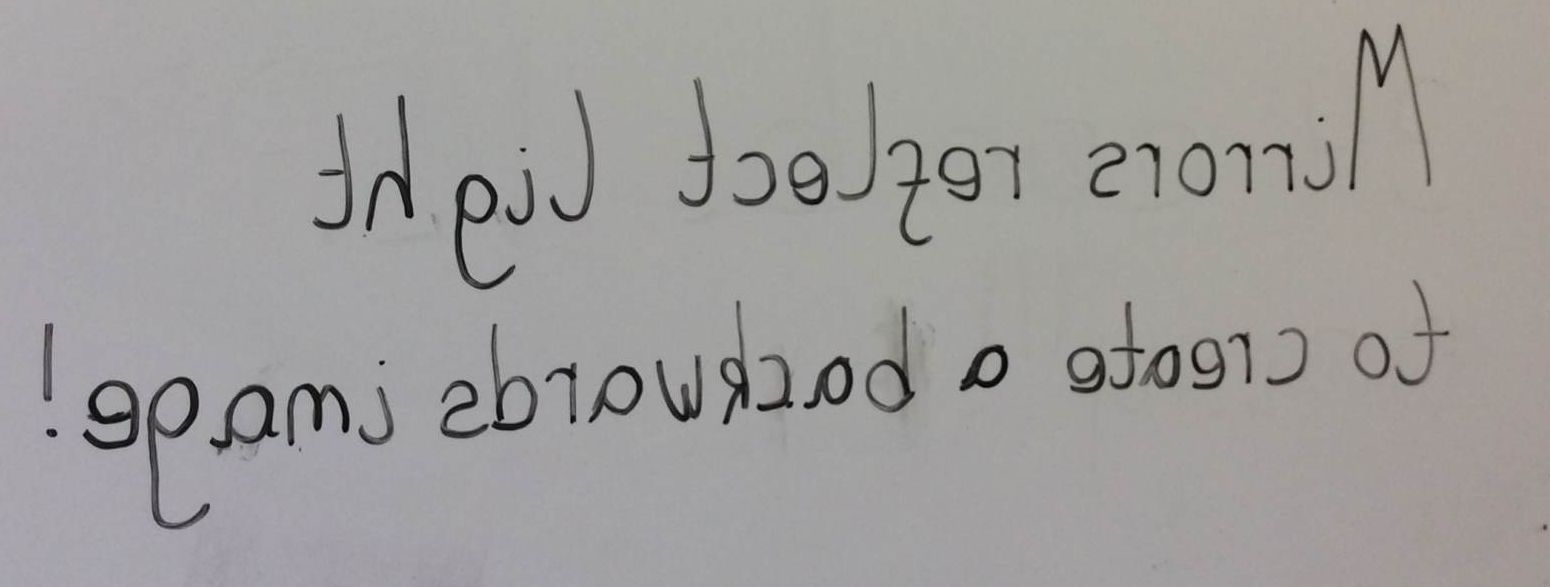 Mirrors reflect light
to create a backwards image!